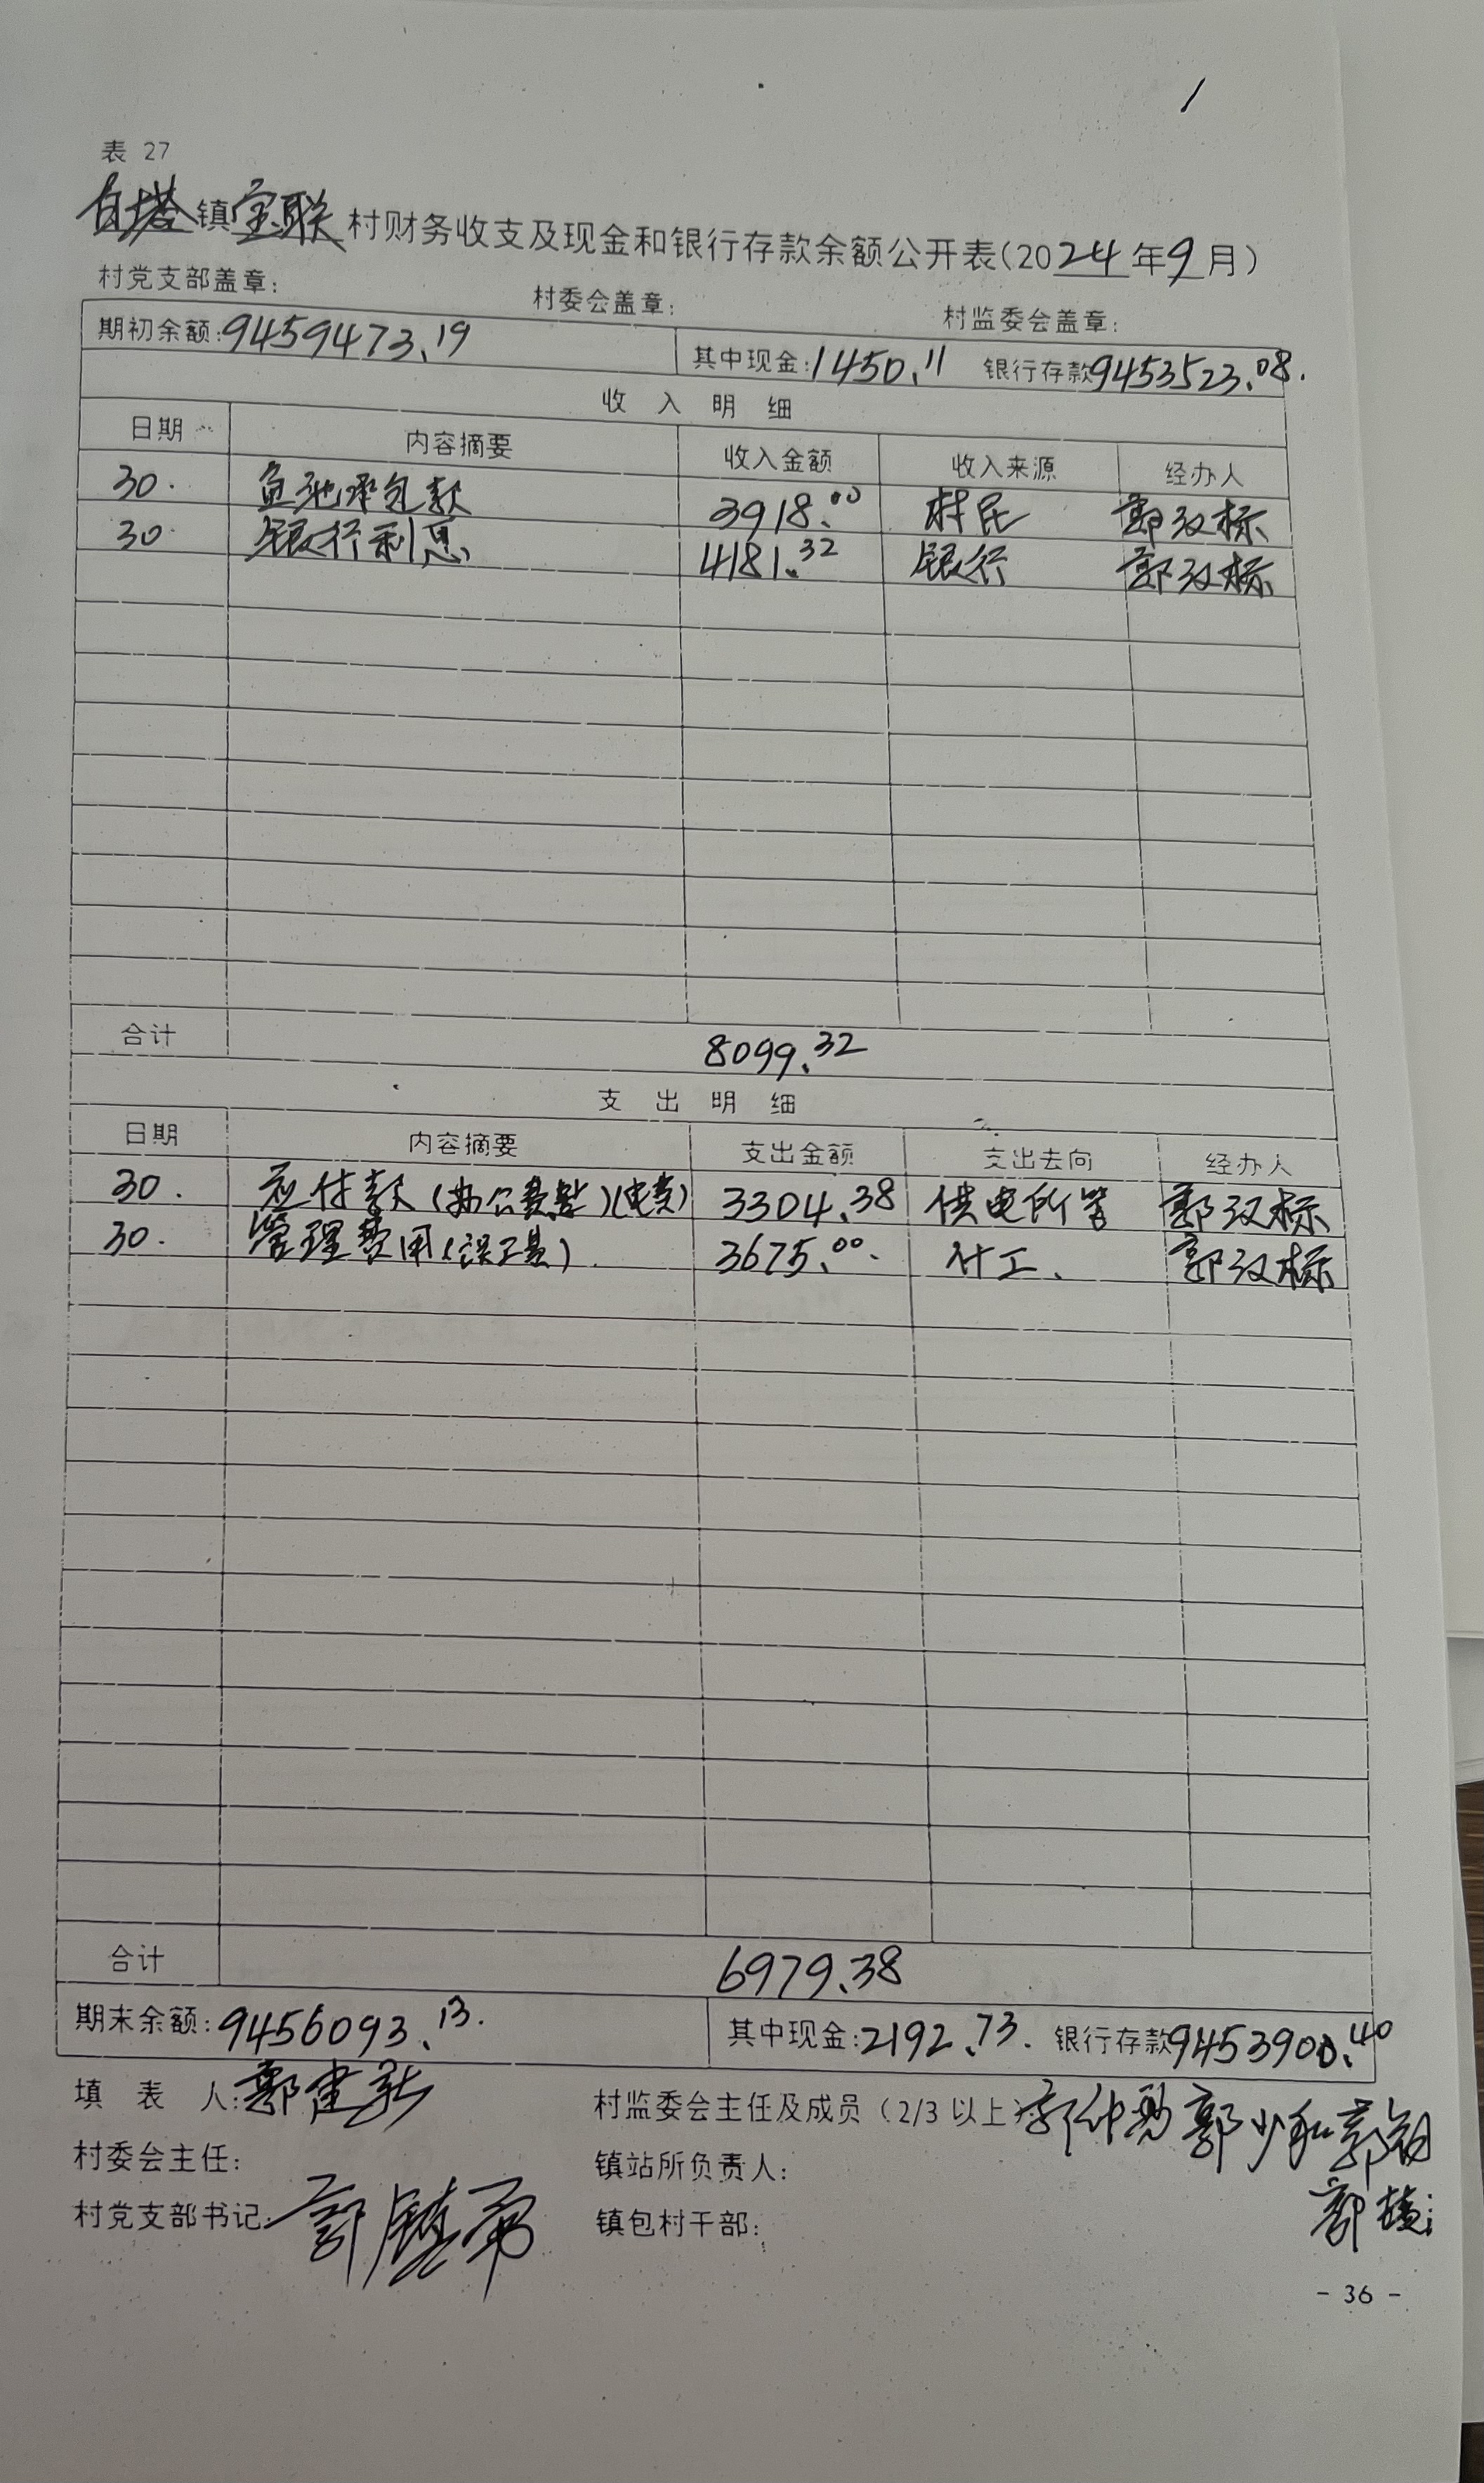 1
表 27
白塔镇宝联村财务收支及现金和银行存款余额公开表(2024年9月)
村党支部盖章: 村委会盖章: 村监委会盖章:
期初余额:9459473.19 其中现金:1450.11 银行存款9453523.08.
收 入 明 细
日期 内容摘要 收入金额 收入来源 经办人
30. 鱼池承包款 3918.00 村民 郭汉标
30. 银行利息 4181.32 银行 郭汉标
合计 8099.32
支 出 明 细
日期 内容摘要 支出金额 支出去向 经办人
30. 应付款(办公费)(电费) 3304.38 供电所等 郭汉标
30. 管理费用(误工费) 3675.00. 计工. 郭汉标
合计 6979.38
期末余额:9456093.13. 其中现金:2192.73. 银行存款9453900.40
填 表 人:郭建新 村监委会主任及成员(2/3以上) 郭少和
村委会主任: 镇站所负责人:
村党支部书记: 郭 镇包村干部: 郭
- 36 -